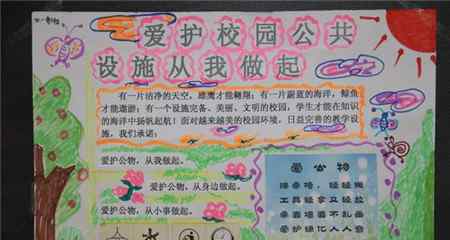 爱护校园公共
设施从我做起
有一片洁净的天空，雄鹰才能翱翔；有一片蔚蓝的海洋，鲸鱼
才能遨游；有一个设施完备、美丽、文明的校园，学生才能在知识
的海洋中扬帆起航！面对越来越美的校园环境、日益完善的教学设
施，我们承诺：
爱护公物，从我做起。
爱护公物，从身边做起。
爱护公物，从小事做起。
爱公物